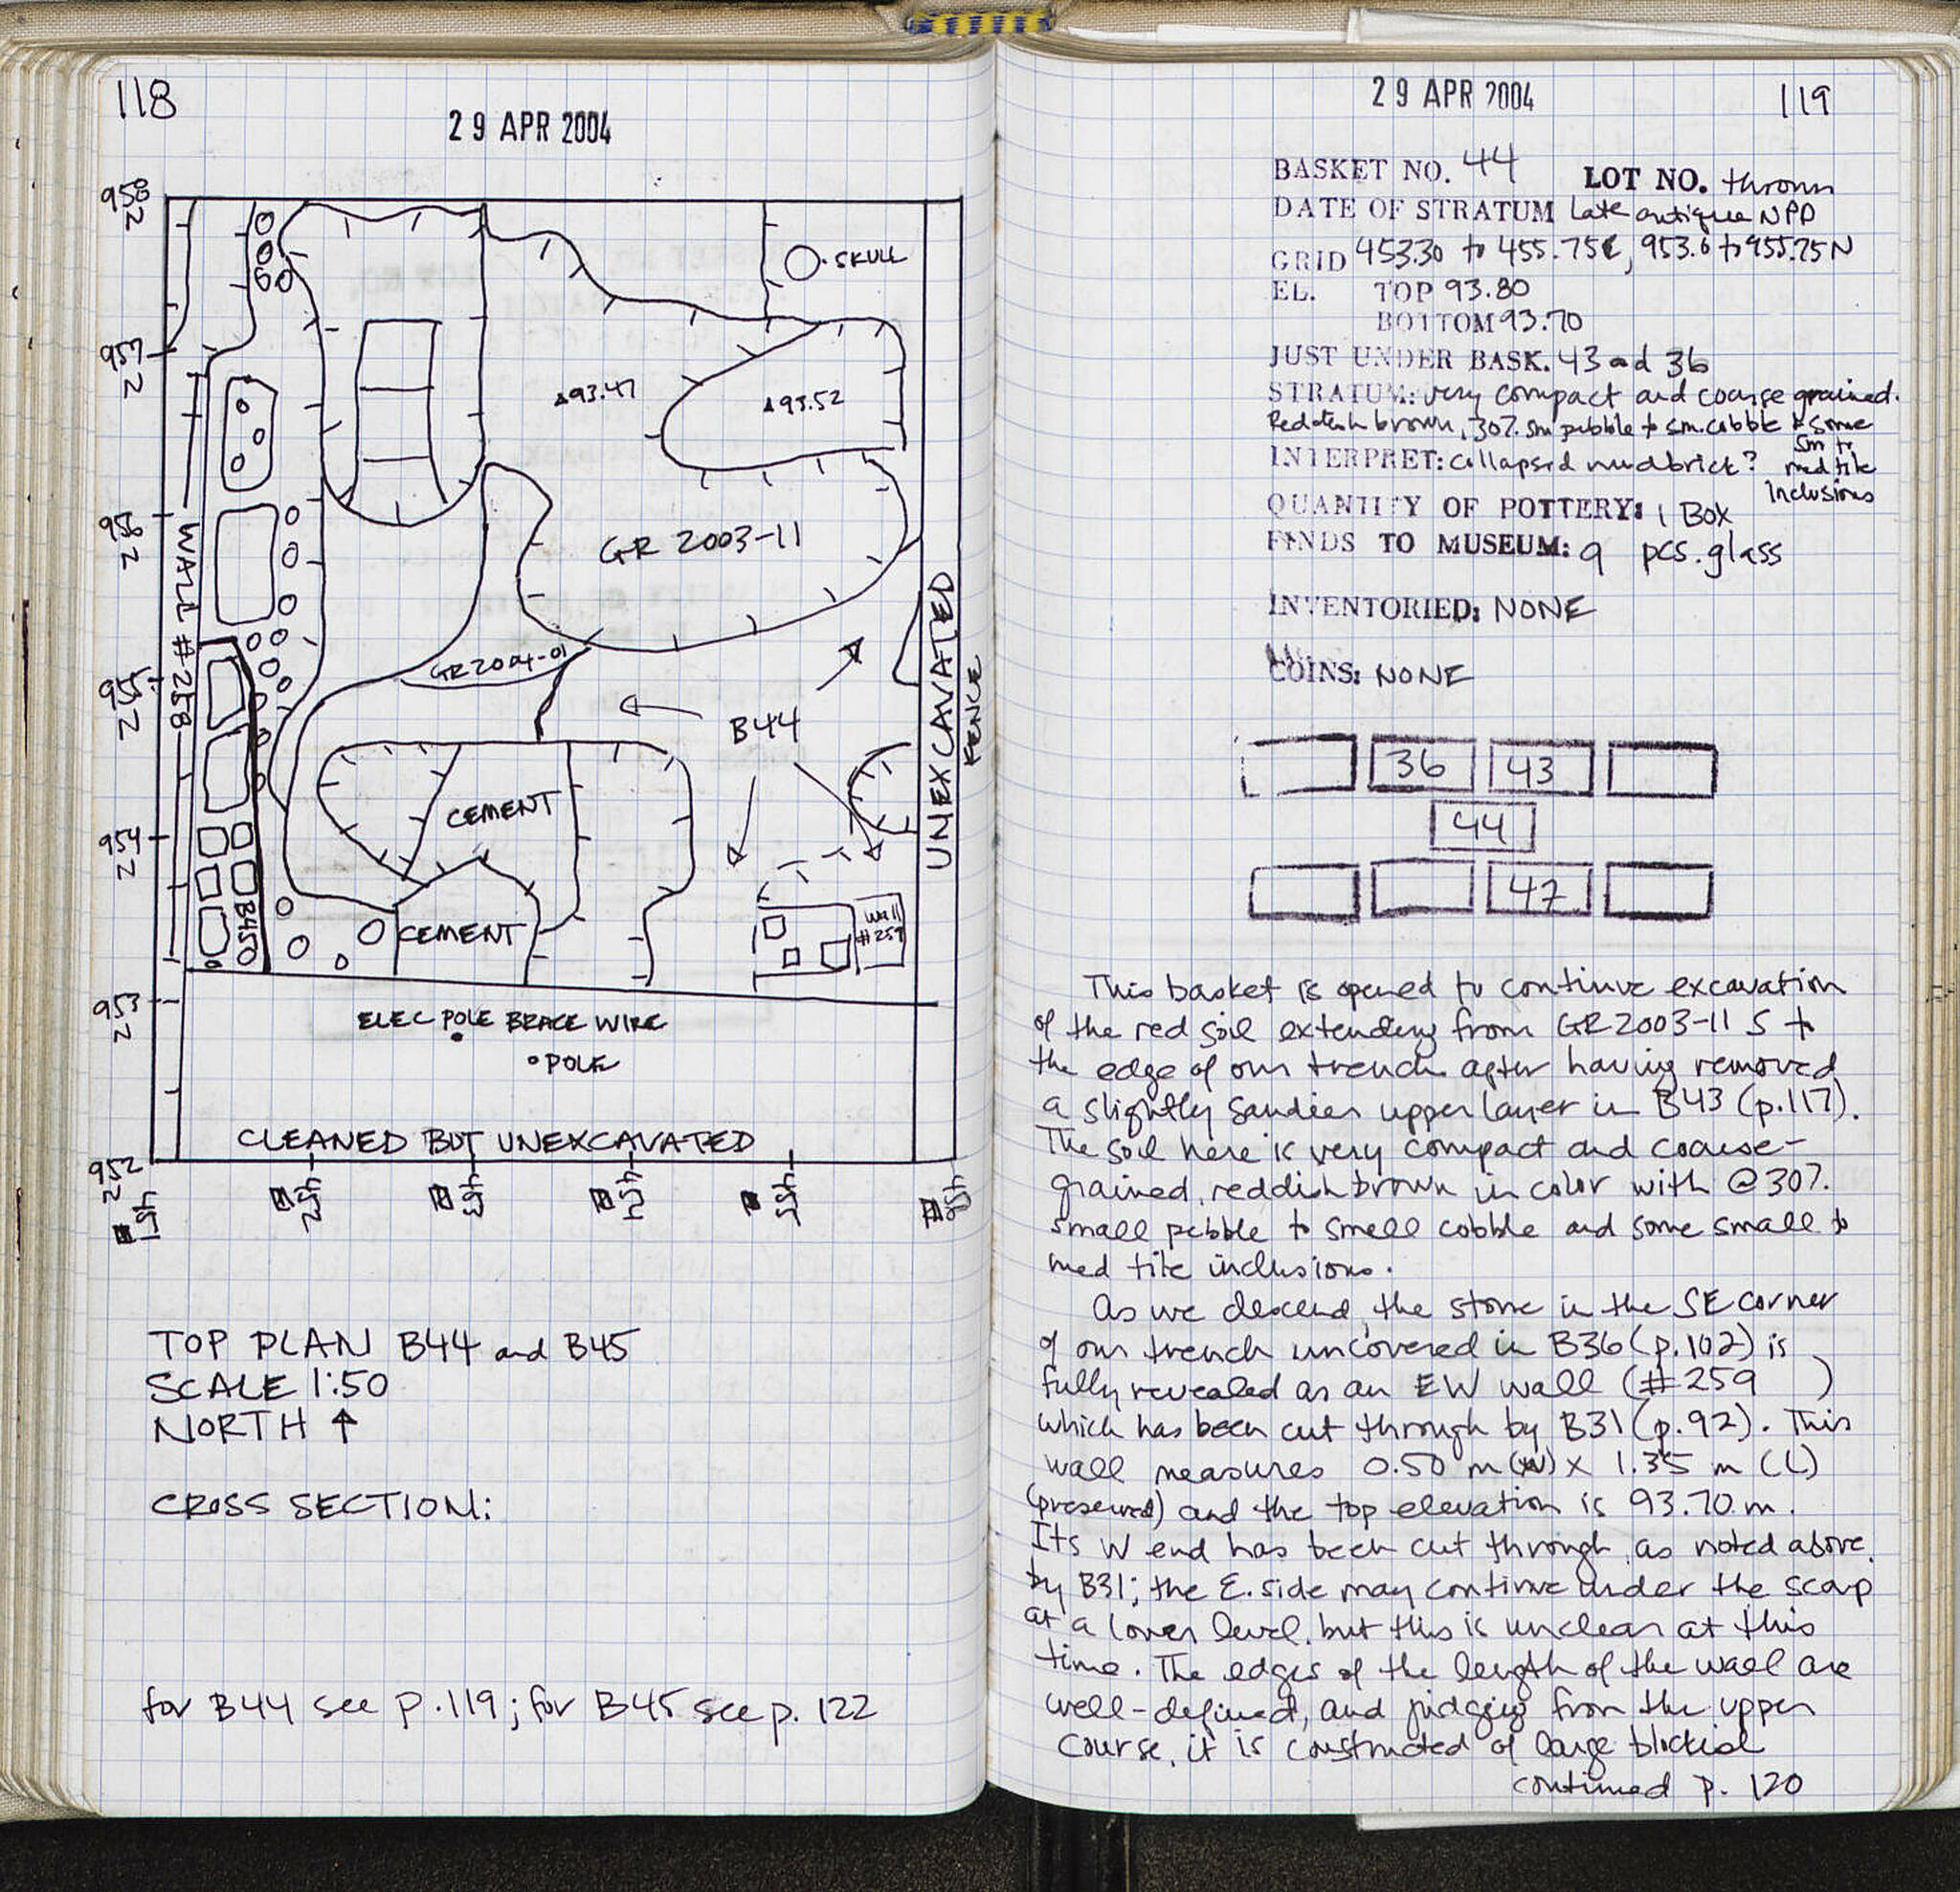 118
29 APR 2004
958
N
957
N
956
N
955
N
954
N
953
N
952
N
SKULL
93.47
93.52
GR 2003-11
WALL #258
GR 2004-01
B44
UNEXCAVATED
FENCE
CEMENT
CEMENT
B45
Wall
#259
ELEC POLE BRACE WIRE
POLE
CLEANED BUT UNEXCAVATED
451
452
453
454
455
456
TOP PLAN B44 and B45
SCALE 1:50
NORTH ↑
CROSS SECTION:
for B44 see p.119; for B45 see p. 122
29 APR 2004
119
BASKET NO. 44 LOT NO. thrown
DATE OF STRATUM Late antique NPD
GRID 453.30 to 455.75E, 953.6 to 955.75N
EL. TOP 93.80
BOTTOM 93.70
JUST UNDER BASK. 43 and 36
STRATUM: very compact and coarse grained.
Reddish brown, 30% sm pebble to sm. cobble & some
sm to
med tile
inclusions
INTERPRET: collapsed mudbrick?
QUANTITY OF POTTERY: 1 Box
FINDS TO MUSEUM: 9 pcs. glass
INVENTORIED: NONE
COINS: NONE
36 43
44
47
This basket is opened to continue excavation
of the red soil extending from GR2003-11 S to
the edge of our trench after having removed
a slightly sandier upper layer in B43 (p.117).
The soil here is very compact and coarse-
grained, reddish brown in color with @30%
small pebble to small cobble and some small to
med tile inclusions.
As we descend, the stone in the SE corner
of our trench uncovered in B36 (p.102) is
fully revealed as an EW wall (#259 )
which has been cut through by B31 (p.92). This
wall measures 0.50 m (W) x 1.35 m (L)
(preserved) and the top elevation is 93.70 m.
Its W end has been cut through, as noted above,
by B31; the E. side may continue under the scarp
at a lower level, but this is unclear at this
time. The edges of the length of the wall are
well-defined, and judging from the upper
course, it is constructed of large blockish
continued p. 120